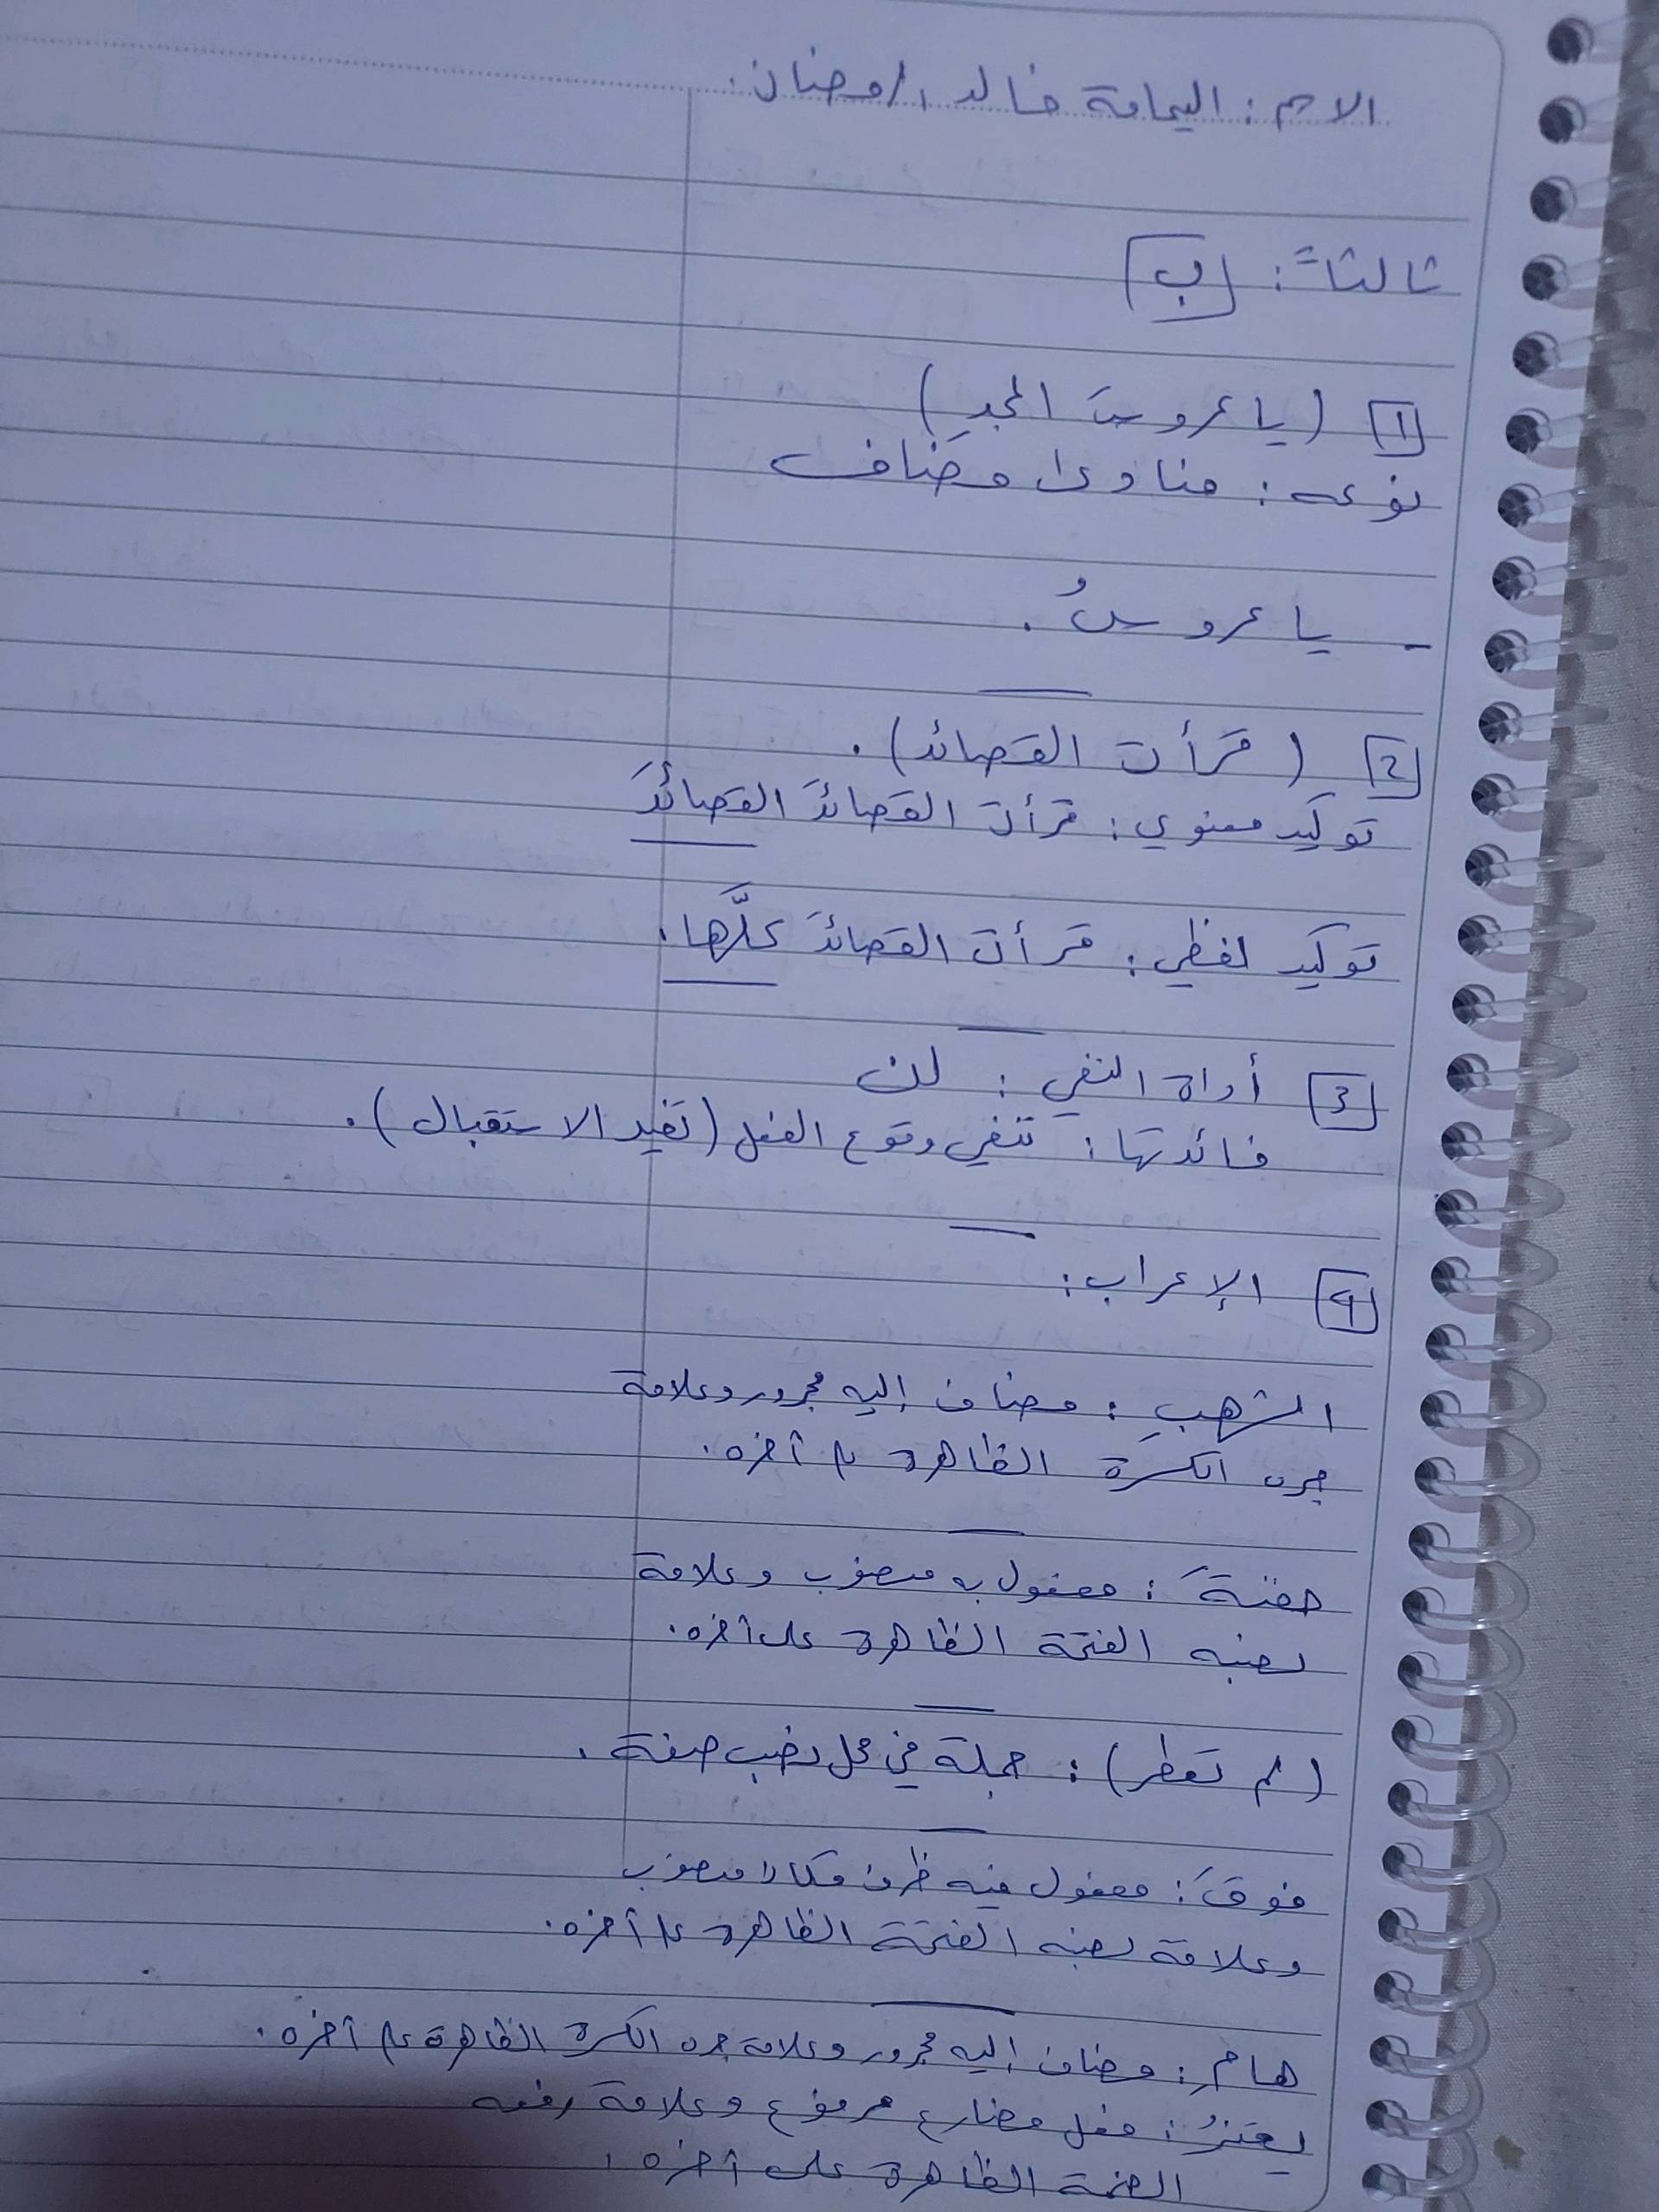 الاسم: اليمامة خالد رمضان.
ثالثاً: ب
1 (يا عروسَ المجدِ)
نوعه: منادى مضاف
- يا عروسُ.
2 (قرأت القصائد).
توكيد معنوي: قرأت القصائدَ القصائدَ
توكيد لفظي: قرأت القصائدَ كلَّها.
3 أداة النفي: لن
فائدتها: تنفي وقوع الفعل (تفيد الاستقبال).
4 الإعراب:
الشهبِ: مضاف إليه مجرور وعلامة
جره الكسرة الظاهرة على آخره.
حقنةً: مفعول به منصوب وعلامة
نصبه الفتحة الظاهرة على آخره.
(لم تعطر): جملة في محل نصب صفة.
فوقَ: مفعول فيه ظرف مكان منصوب
وعلامة نصبه الفتحة الظاهرة على آخره.
هامِ: مضاف إليه مجرور وعلامة جره الكسرة الظاهرة على آخره.
يعتزُ: فعل مضارع مرفوع وعلامة رفعه
الضمة الظاهرة على آخره.